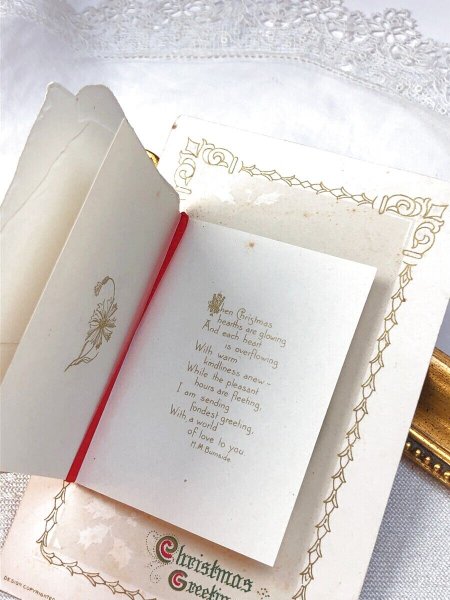 When Christmas
hearths are glowing
And each heart
is overflowing
With warm
kindliness anew—
While the pleasant
hours are fleeting,
I am sending
fondest greeting,
With a world
of love to you
M.M. Burnside.
Christmas
Greetin
DESIGN COPYRIGHTED